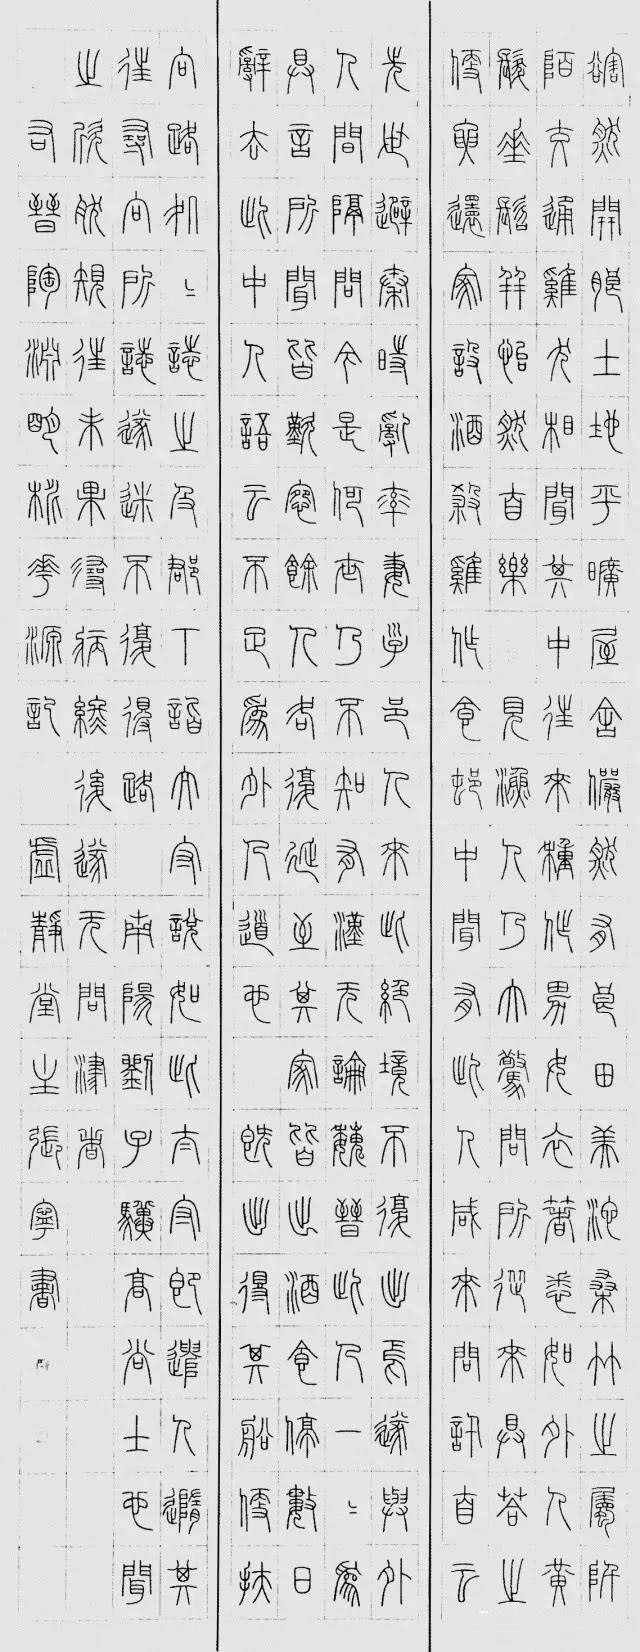 豁然開朗土地平曠屋舍儼然有良田美池桑竹之屬阡
陌交通雞犬相聞其中往來種作男女衣著悉如外人黃
髮垂髫并怡然自樂 見漁人乃大驚問所從來具答之
便要還家設酒殺雞作食村中聞有此人咸來問訊自云
先世避秦時亂率妻子邑人來此絕境不復出焉遂與外
人間隔問今是何世乃不知有漢无論魏晉此人一〻為
具言所聞皆歎惋餘人各復延至其家皆出酒食停數日
辭去此中人語云不足為外人道也 既出得其船便扶
向路処〻誌之及郡下詣太守說如此太守即遣人隨其
往尋向所誌遂迷不復得路 南陽劉子驥高尚士也聞
之欣然規往未果尋病終後遂无問津者
右晉陶淵明桃花源記 虛靜堂主張寧書